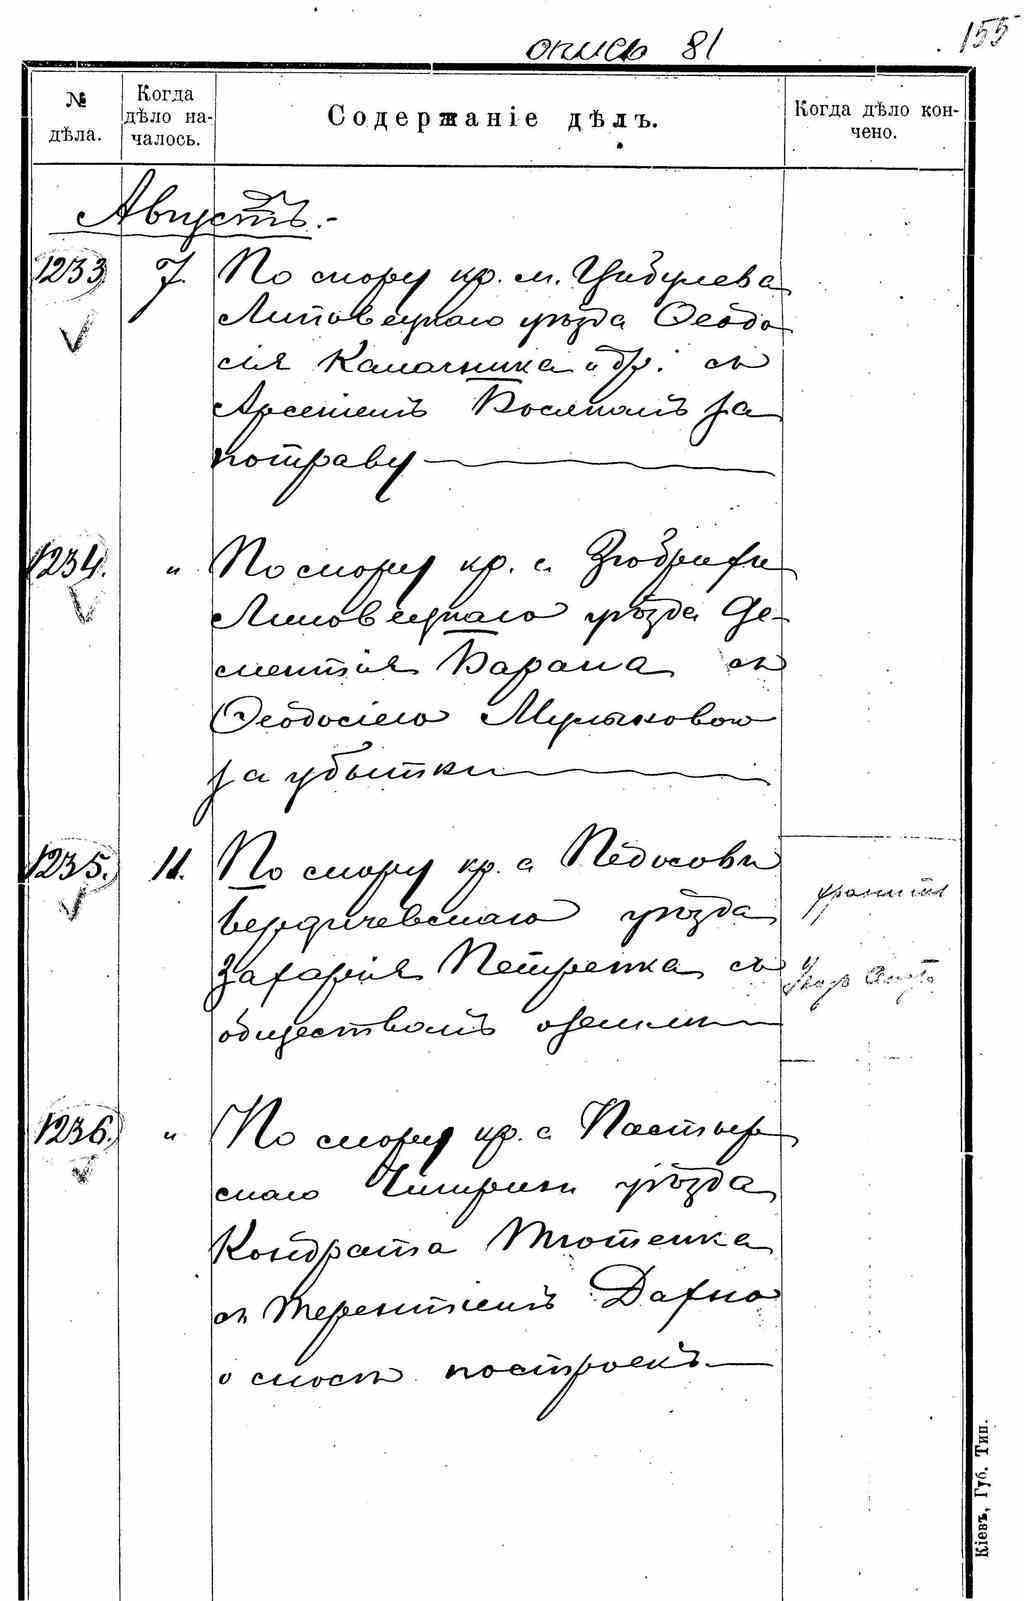 опись 81
155
№ дѣла.
Когда дѣло началось.
Содержаніе дѣлъ.
Когда дѣло кончено.
Августъ.-
1233
7.
По спору кр. м. Цибулева
Липовецкаго уѣзда Ѳеодо
сія Калачника и др. съ
Арсеніемъ Босякомъ за
потраву
1234.
"
По спору кр. с.
Липовецкаго уѣзда Де-
ментія Барана съ
Ѳеодосіею
за убытки
1235.
11.
По спору кр. с Педосовки
Бердичевскаго уѣзда
Захарія Петренка съ
обществомъ о землѣ
1236.
"
По спору кр. с Пастыр
скаго Чигирин уѣзда
Кондрата Тютенка
съ Терентіемъ Дахно
о сносѣ построекъ
Кіевъ, Губ. Тип.